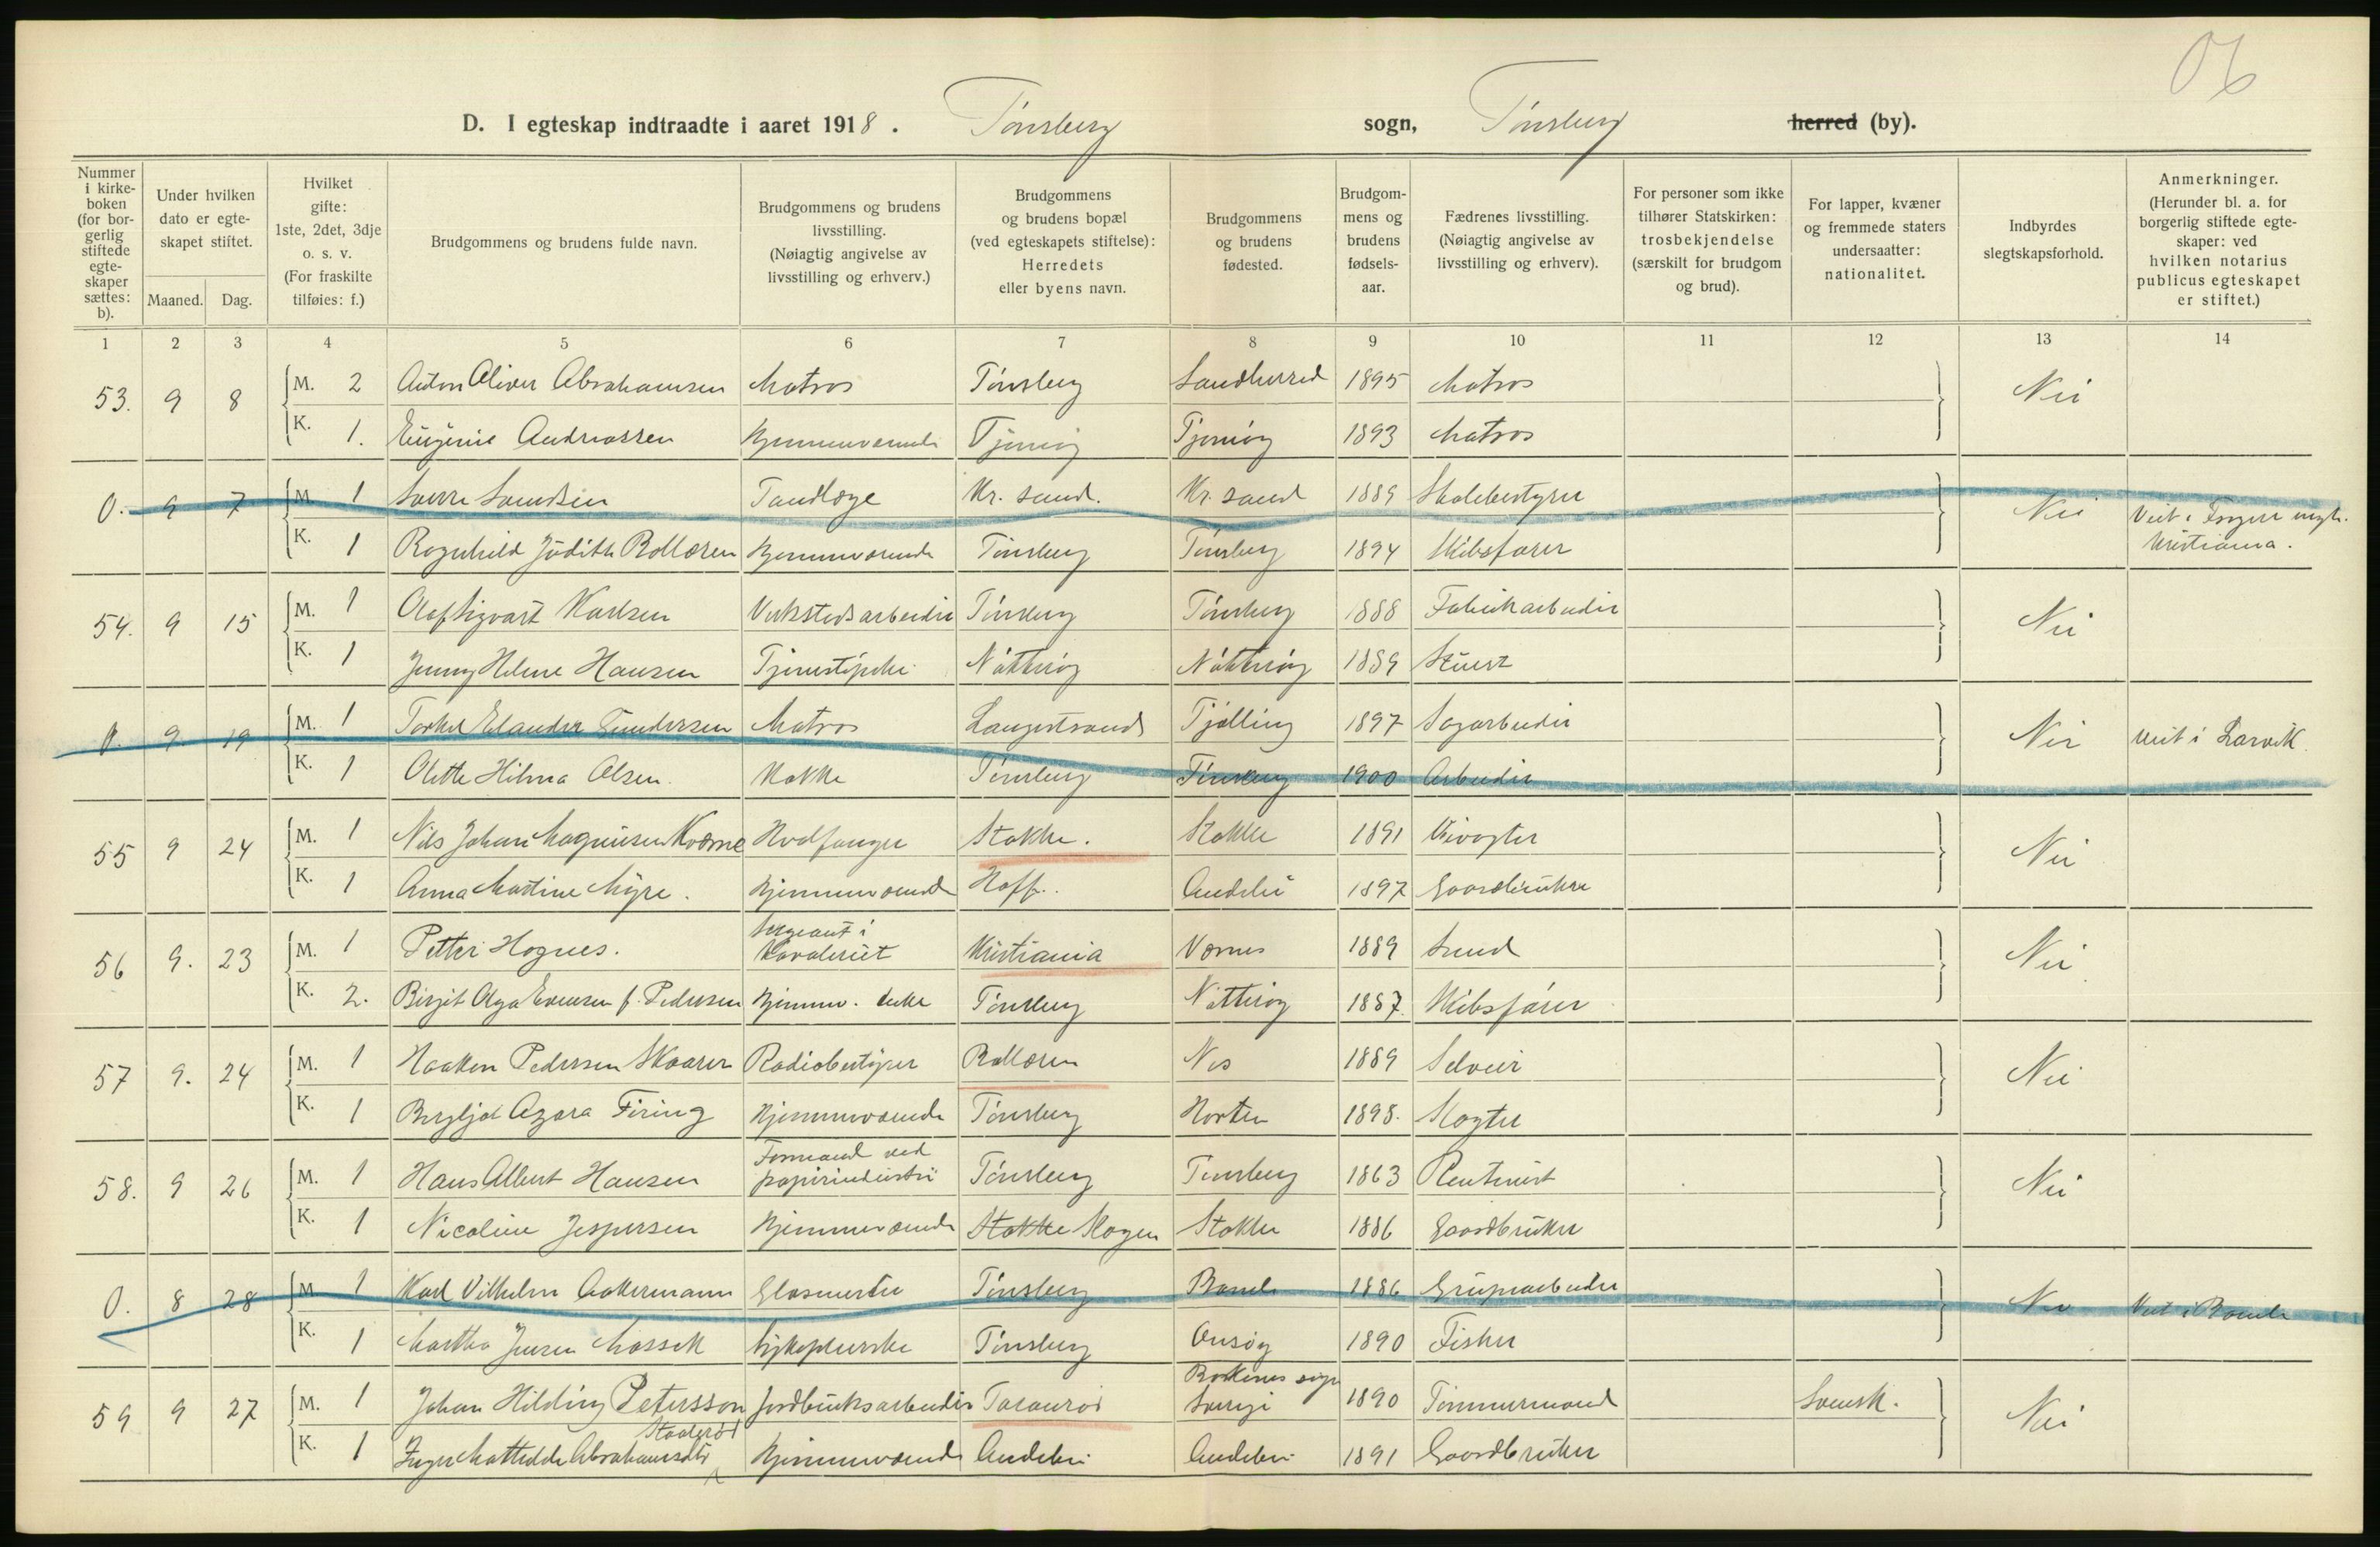 06
D. I egteskap indtraadte i aaret 1918. Tønsberg sogn, Tønsberg herred (by).
Nummer i kirkeboken (for borgerlig stiftede egteskaper sættes: b).
Under hvilken dato er egteskapet stiftet.
Maaned. Dag.
Hvilket gifte: 1ste, 2det, 3dje o. s. v. (For fraskilte tilføies: f.)
Brudgommens og brudens fulde navn.
Brudgommens og brudens livsstilling. (Nøiagtig angivelse av livsstilling og erhverv.)
Brudgommens og brudens bopæl (ved egteskapets stiftelse): Herredets eller byens navn.
Brudgommens og brudens fødested.
Brudgommens og brudens fødselsaar.
Fædrenes livsstilling. (Nøiagtig angivelse av livsstilling og erhverv).
For personer som ikke tilhører Statskirken: trosbekjendelse (særskilt for brudgom og brud).
For lapper, kvæner og fremmede staters undersaatter: nationalitet.
Indbyrdes slegtskapsforhold.
Anmerkninger. (Herunder bl. a. for borgerlig stiftede egteskaper: ved hvilken notarius publicus egteskapet er stiftet.)
1 2 3 4 5 6 7 8 9 10 11 12 13 14
53. 9 8 M. 2 Anton Oliver Abrahamsen Matros Tønsberg Sandherred 1895 Matros Nei
K. 1. Eugenie Andreassen Hjemmeværende Tjømø Tjømø 1893 Matros
0. 9 7 M. 1 Sverre Svendsen Tandlæge Kr. sand. Kr. sand 1889 Skolebestyrer Nei Viet i
K. 1 Ragnhild Judith Bollæren Hjemmeværende Tønsberg Tønsberg 1894 Skibsfører Kristiania.
54. 9 15 M. 1 Olaf Sigvart Karlsen Verkstedsarbeider Tønsberg Tønsberg 1888 Fabrikarbeider Nei
K. 1 Jenny Helene Hansen Tjenestepike Nøtterøy Nøtterøy 1889 Stuert
0. 9. 19 M. 1 Torkel Elander Gundersen Matros Langestrand Tjølling 1897 Sagarbeider Nei Viet i Larvik.
K. 1 Olette Hilma Olsen. Kokke Tønsberg Tønsberg 1900 Arbeider
55 9 24 M. 1 Nils Johan Magnussen Kværne Hvalfanger Stokke. Stokke 1891 Nei
K. 1 Anna Martine Myre. Hjemmeværende Hoff. Andebu 1897 Gaardbruker
56 9. 23 M. 1 Petter Hognes. Sergeant i Kavaleriet Kristiania Værnes 1889 Smed Nei
K. 2. Birgit Olga Evensen f. Pedersen Hjemmev. Enke Tønsberg Nøtterøy 1887. Skibsfører
57 9. 24 M. 1 Haakon Pedersen Skaarer Radiobestyrer Bollæren Nes 1889 Selveier Nei
K. 1 Bergljot Agora Firing Hjemmeværende Tønsberg Horten 1898. Slagter
58. 9 26 M. 1 Hans Albert Hansen Formand ved papirindustri Tønsberg Tønsberg 1863 Nei
K. 1 Nicoline Jespersen Hjemmeværende Stokke Skogen Stokke 1886 Gaardbruker
0. 8 28 M. 1 Karl Vilhelm Aakermann Glasmester Tønsberg Bamle 1886 Grupearbeider Nei Viet i Bamle
K. 1 Martha Jensen Sykepleierske Tønsberg Onsøy 1890 Fisker
59 9 27 M. 1 Johan Hilding Petersson Jordbruksarbeider sogn Sverige 1890 Tømmermand Svensk. Nei
K. 1 Inger Mathilde Abrahamsdtr Staalerød Hjemmeværende Andebu Andebu 1891 Gaardbruker